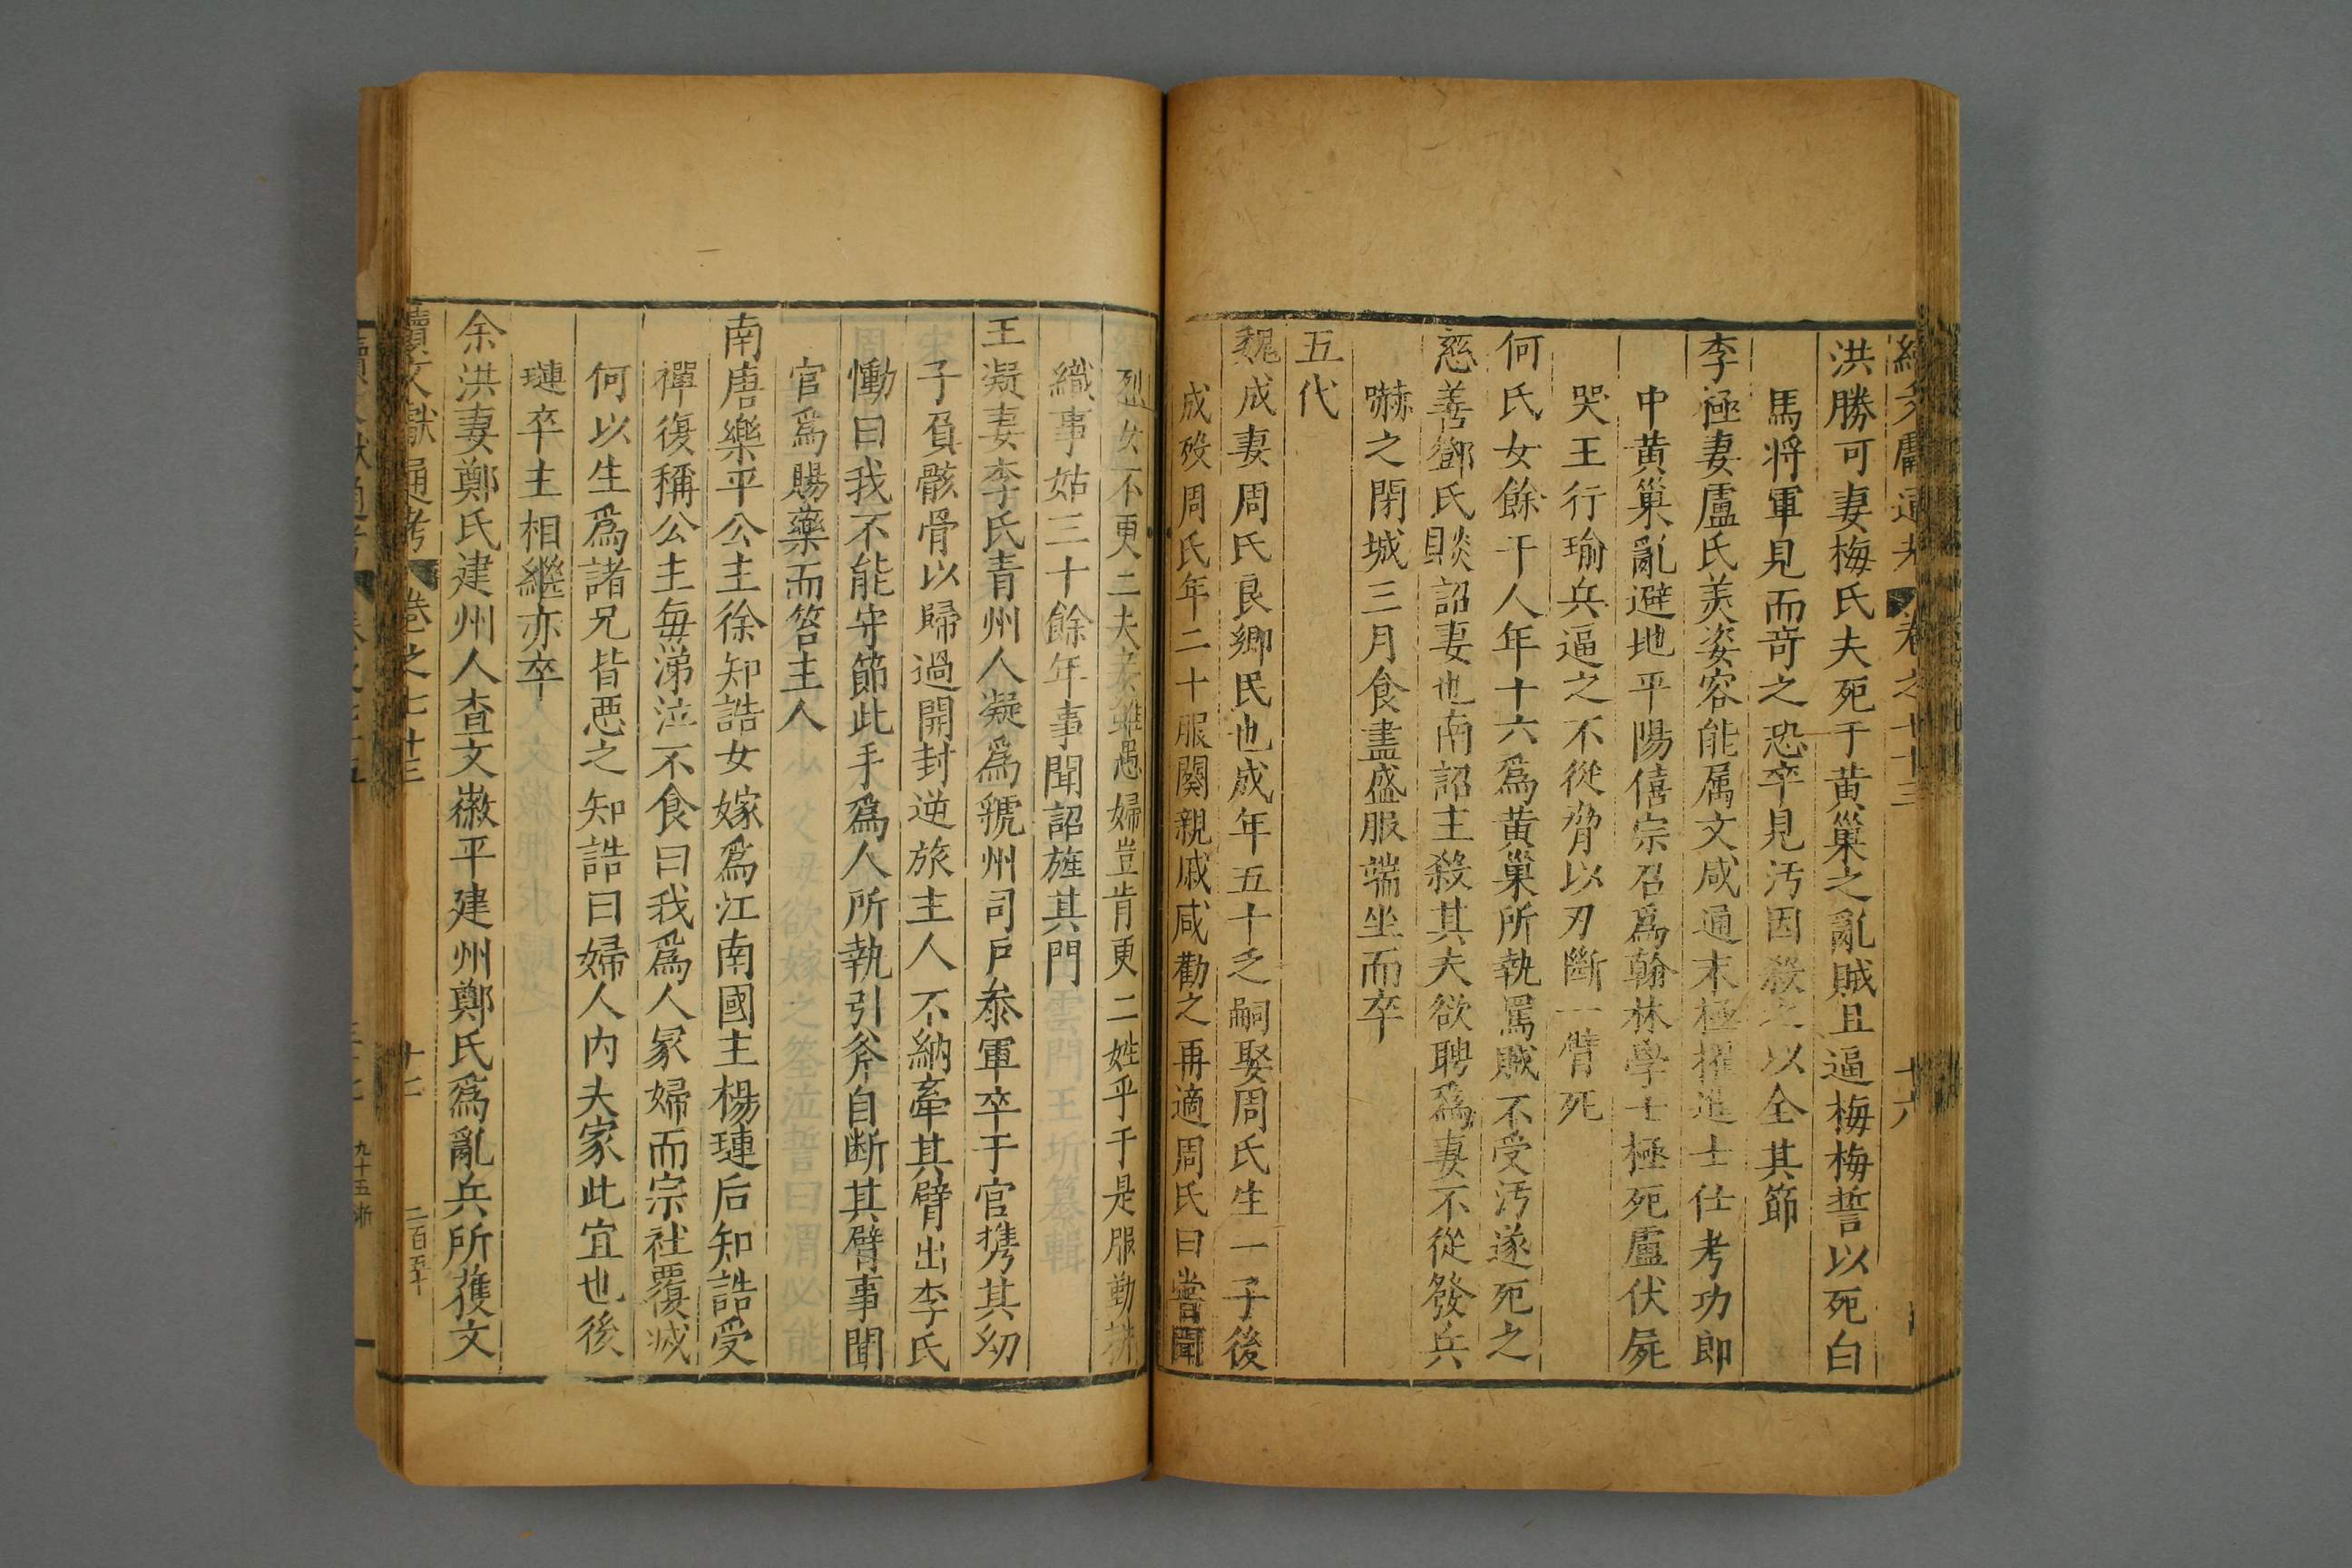 續文獻通考 卷之七十三 十六
洪勝可妻梅氏夫死于黄巢之亂賊且逼梅梅誓以死白
馬将軍見而奇之恐卒見汚因殺之以全其節
李極妻盧氏美姿容能属文咸通末極擢進士仕考功郎
中黄巢亂避地平陽僖宗召爲翰林學士極死盧伏屍
哭王行瑜兵逼之不從脅以刃斷一臂死
何氏女餘干人年十六爲黄巢所執罵賊不受汚遂死之
慈善鄧氏賧詔妻也南詔主殺其夫欲聘爲妻不從發兵
嚇之閉城三月食盡盛服端坐而卒
五代
魏成妻周氏良鄉民也成年五十乏嗣娶周氏生一子後
成殁周氏年二十服闋親戚咸勸之再適周氏曰嘗聞
烈女不更二夫妾雖愚婦豈肯更二姓乎于是服勤
織事姑三十餘年事聞詔旌其門
王凝妻李氏青州人凝爲虢州司戶叅軍卒于官携其幼
子負骸骨以歸過開封逆旅主人不納牽其臂出李氏
慟曰我不能守節此手爲人所執引斧自断其臂事聞
官爲賜藥而笞主人
南唐樂平公主徐知誥女嫁爲江南國主楊璉后知誥受
禪復稱公主每涕泣不食曰我爲人冡婦而宗社覆滅
何以生爲諸兄皆悪之知誥曰婦人内夫家此宜也後
璉卒主相繼亦卒
余洪妻鄭氏建州人查文徽平建州鄭氏爲亂兵所獲文
續文獻通考 卷之七十三 十七 二百五十
九十五浙